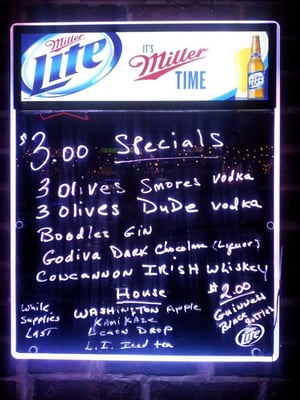 Miller
Lite
IT'S
Miller
TIME
$3.00 Specials
3 Olives Smores vodka
3 Olives DuDe vodka
Boodles Gin
Godiva Dark Chocolate (Liquor)
Concannon IRISH Whiskey
House
While
Supplies
LAST
WASHINGTON Apple
Kamikaze
Lemon DROP
L.I. Iced tea
$2.00
Guinness
Black
Bottles
Lite